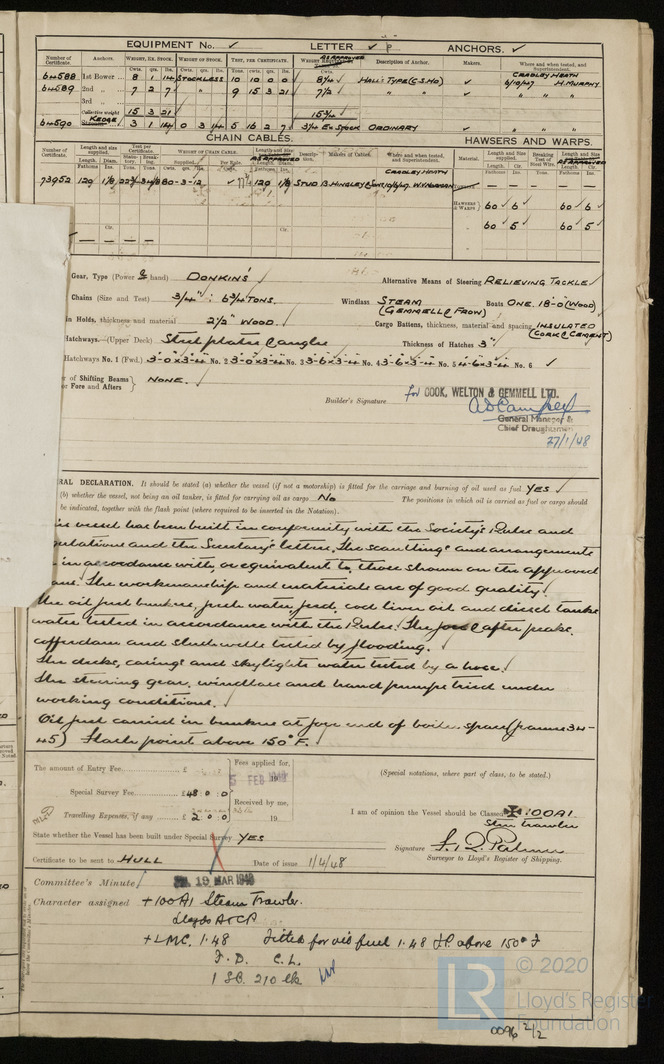 EQUIPMENT No. ✓ LETTER ✓ P ANCHORS. ✓
Number of Certificate. Anchors. WEIGHT, EX. STOCK. WEIGHT OF STOCK. TEST, PER CERTIFICATE. AS APPROVED Description of Anchor. Makers. Where and when tested, and Superintendent.
64588 1st Bower 8 1 14 STOCKLESS 10 10 0 0 8¼ HALL TYPE (C.S.HD) ✓ CRADLEY HEATH
64589 2nd " 7 2 7 " 9 15 3 21 7½ " " ✓ 6/10/47 H. MURPHY
3rd "
Collective weight 15 3 21 15¾
64590 KEDGE 3 1 14 0 3 14 5 16 2 7 3¼ Ex Stock ORDINARY ✓ " "
CHAIN CABLES. HAWSERS AND WARPS.
Number of Certificate. Length and Size supplied. Test per Certificate. WEIGHT OF CHAIN CABLE. Length and Size AS APPROVED Description. Makers of Cables. Where and when tested, and Superintendent. Material. Length and Size supplied. Breaking Test of Steel Wire. Length and Size
CRADLEY HEATH
73952 120 1⅛ 80-3-12 ✓ 120 1⅛ STUD W. NORMAN
HAWSERS & WARPS 60 6 ✓ 60 6 ✓
60 5 ✓ 60 5 ✓
Gear, Type (Power & hand) DONKIN'S Alternative Means of Steering RELIEVING TACKLE
Chains (Size and Test) 3/4" : 6¾ TONS. Windlass STEAM (GEMMELL & FROW) Boats ONE. 18'-0" (WOOD)
in Holds, thickness and material 2½" WOOD. Cargo Battens, thickness, material and spacing INSULATED (CORK & CEMENT)
Hatchways.—(Upper Deck) Steel plates & angles Thickness of Hatches 3"
Hatchways No. 1 (Fwd.) 3'-0"x3'-4" No. 2 3'-0"x3'-4" No. 3 3'-6"x3'-4" No. 4 3'-6"x3'-4" No. 5 4'-6"x3'-4" No. 6 ✓
of Shifting Beams or Fore and Afters } NONE.
Builder's Signature for COOK, WELTON & GEMMELL LTD.
General Manager & Chief Draughtsman
27/1/48
RAL DECLARATION. It should be stated (a) whether the vessel (if not a motorship) is fitted for the carriage and burning of oil used as fuel YES ✓
(b) whether the vessel, not being an oil tanker, is fitted for carrying oil as cargo No The positions in which oil is carried as fuel or cargo should
be indicated, together with the flash point (where required to be inserted in the Notation).
vessel has been built in conformity with the Society's Rules and
and the Secretary's letters. The scantlings and arrangements
in accordance with, or equivalent to, those shown on the approved
The workmanship and materials are of good quality.
The oil fuel bunkers, fresh water, feed, cod liver oil and diesel tanks
water tested in accordance with the Rules. The fore & after peaks,
cofferdam and slush wells tested by flooding.
The decks, casings and skylights water tested by a hose.
The steering gear, windlass and hand pumps tried under
working conditions.
Oil fuel carried in bunkers at fore end of boiler space (frames 34-
45) Flash point above 150°F.
The amount of Entry Fee £ Fees applied for, 5 FEB 1948 (Special notations, where part of class, to be stated.)
Special Survey Fee £48 : 0 : 0 Received by me,
Travelling Expenses, if any £ 2 : 0 : 0 19 I am of opinion the Vessel should be Classed ✠ 100A1
Steam Trawler
State whether the Vessel has been built under Special Survey YES
Signature
Surveyor to Lloyd's Register of Shipping.
Certificate to be sent to HULL Date of issue 1/4/48
Committee's Minute 19 MAR 1948
Character assigned +100A1 Steam Trawler.
Lloyds A&CP
+LMC. 1.48 Fitted for oil fuel 1.48 FP above 150°F
F.D. C.L.
1 SB. 210 lb
© 2020
LR Lloyd's Register Foundation
0096 2/2